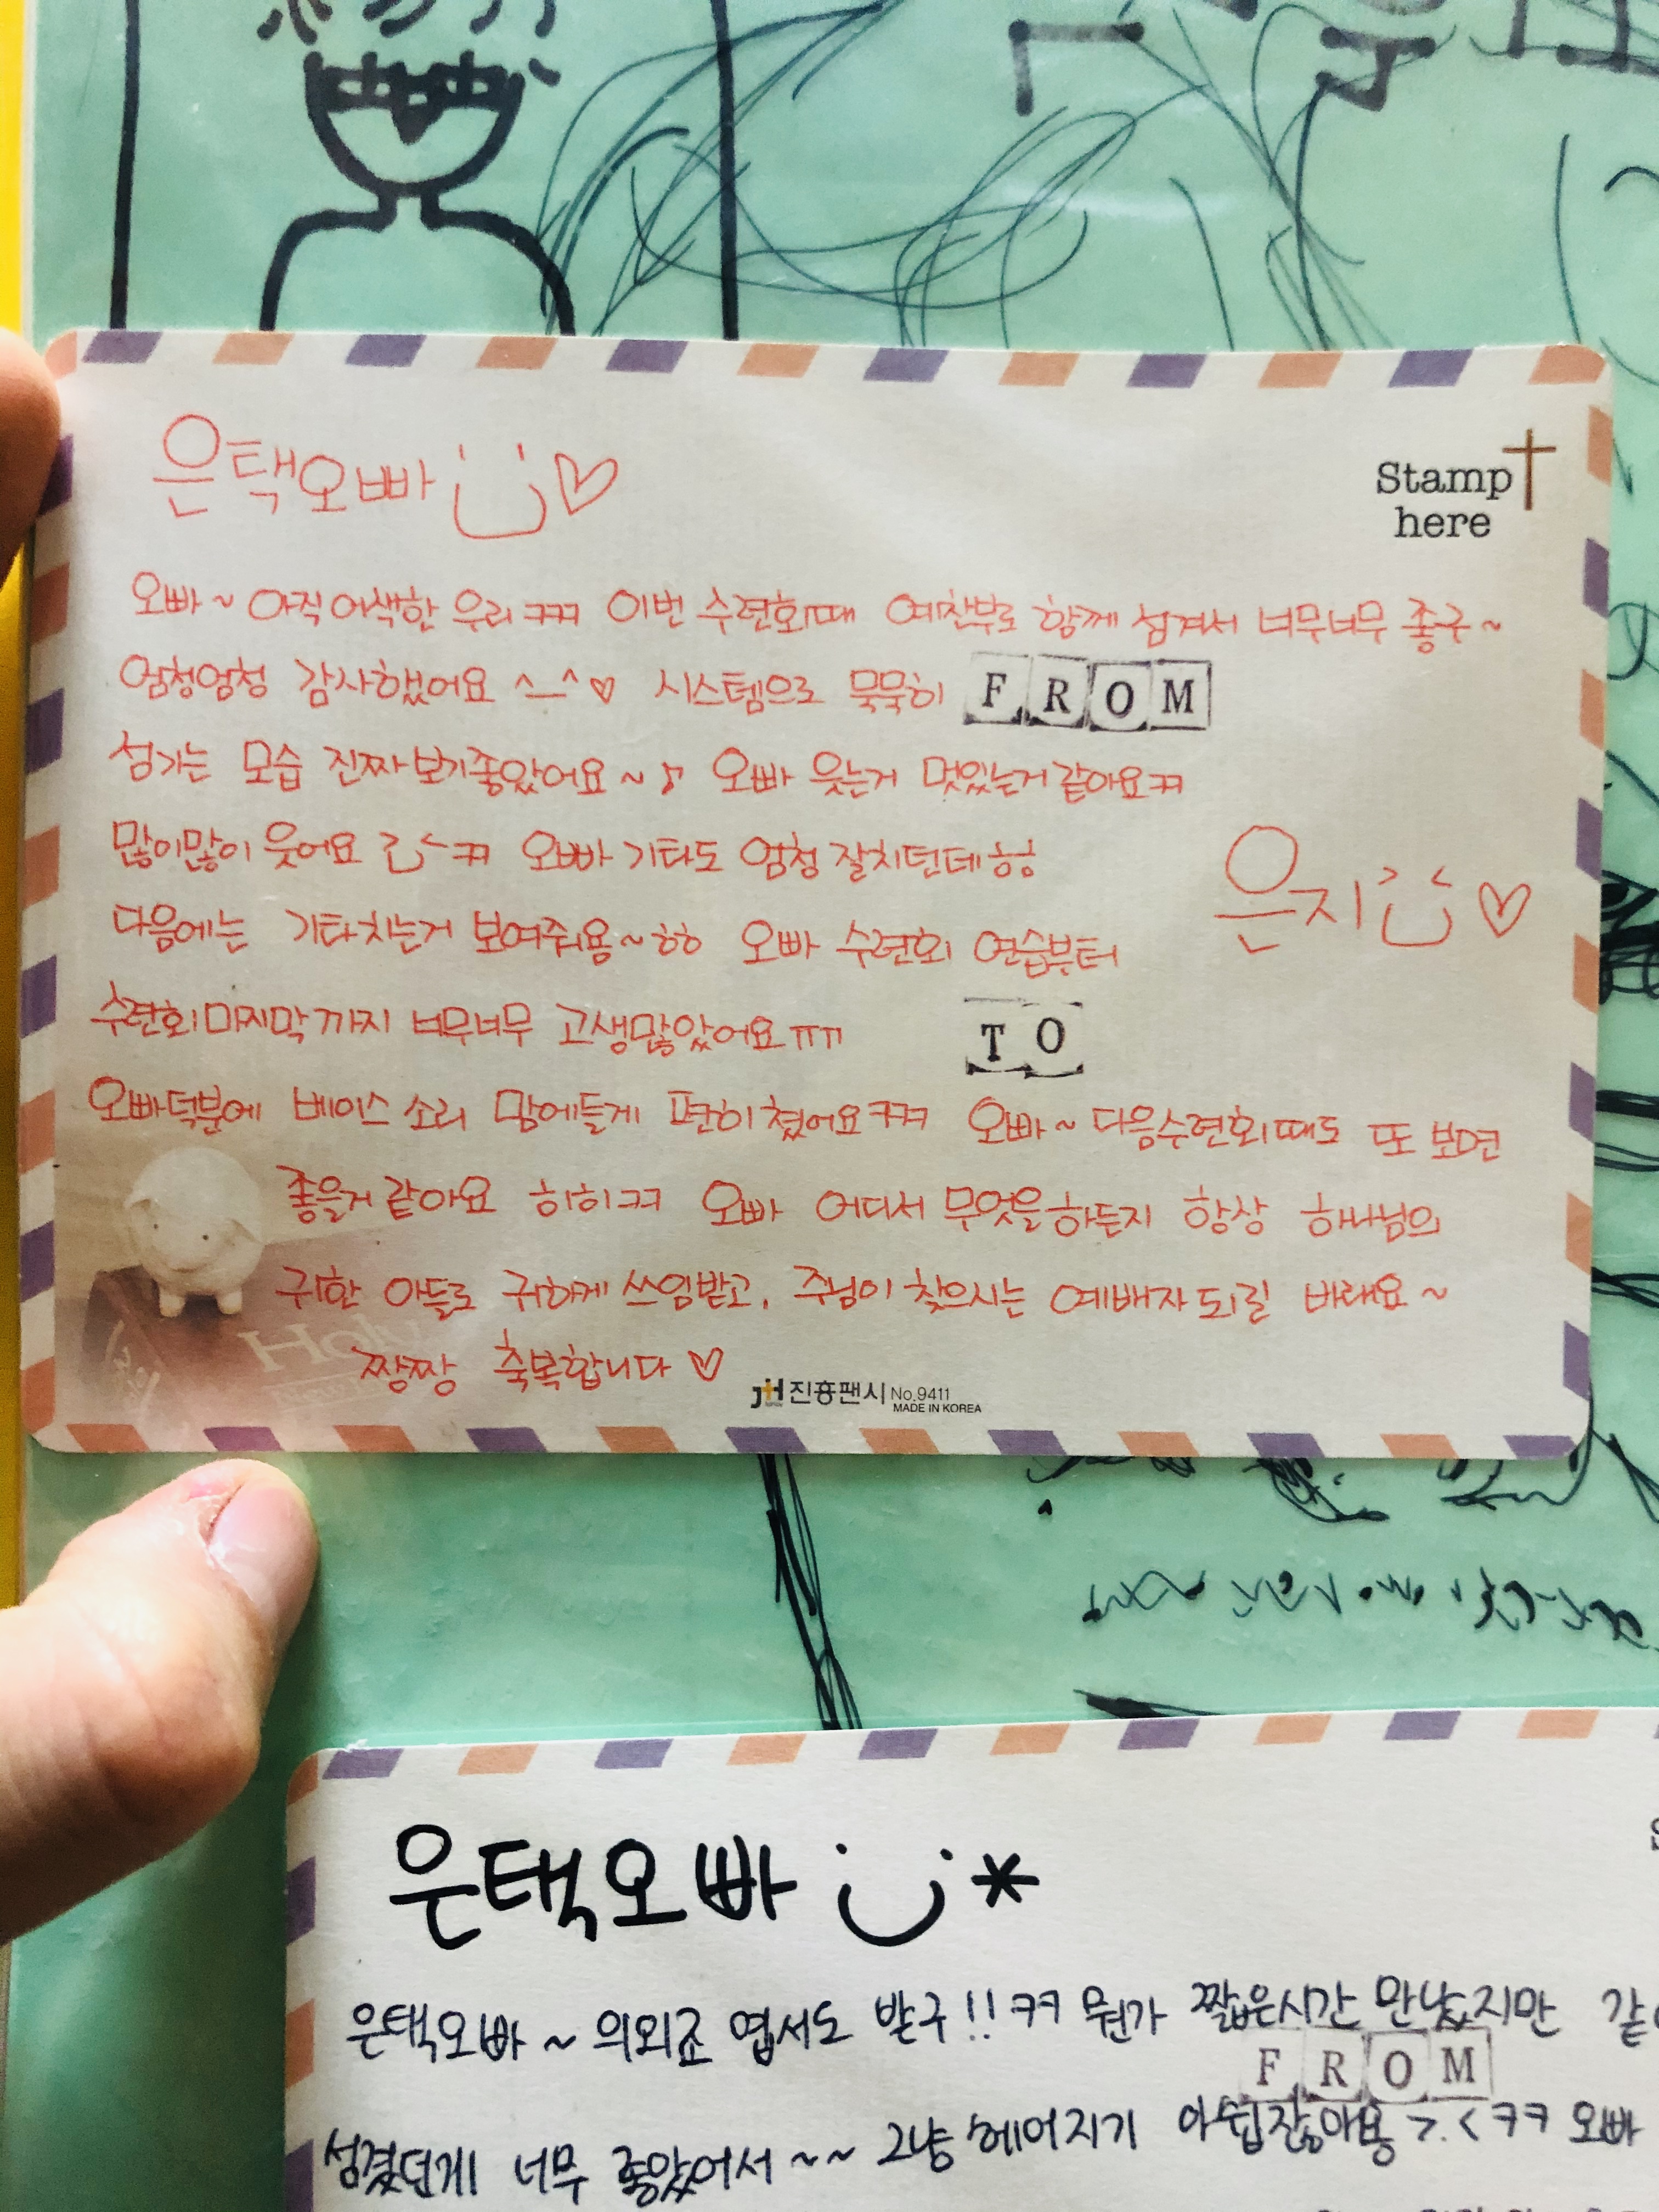 은택오빠
Stamp
here
오빠~ 아직 어색한 우리 ㅋㅋㅋ 이번 수련회때 예찬부로 함께 섬겨서 너무너무 좋구~
엄청엄청 감사했어요 ^_^♡ 시스템으로 묵묵히
FROM
섬기는 모습 진짜 보기좋았어요~♪ 오빠 웃는거 멋있는거같아요ㅋㅋ
많이많이 웃어요 ㅋㅋ 오빠 기타도 엄청 잘치던데ㅎㅎ
은지
다음에는 기타치는거 보여줘용~ㅎㅎ 오빠 수련회 연습부터
수련회마지막까지 너무너무 고생많았어요ㅠㅠ
TO
오빠덕분에 베이스 소리 맘에들게 편히 쳤어요ㅋㅋㅋ 오빠~ 다음수련회때도 또 보면
좋을거 같아요 히히ㅋㅋ 오빠 어디서 무엇을하든지 항상 하나님의
귀한 아들로 귀하게 쓰임받고, 주님이 찾으시는 예배자 되길 바래요~
짱짱 축복합니다♡
Holy
진흥팬시 No.9411
MADE IN KOREA
은택오빠 *
은택오빠~ 의외죠 엽서도 받구!! ㅋㅋ 뭔가 짧은시간 만났지만
FROM
섬겼던게 너무 좋았어서~~ 그냥 헤어지기 아쉽잖아용 >.< ㅋㅋ 오빠